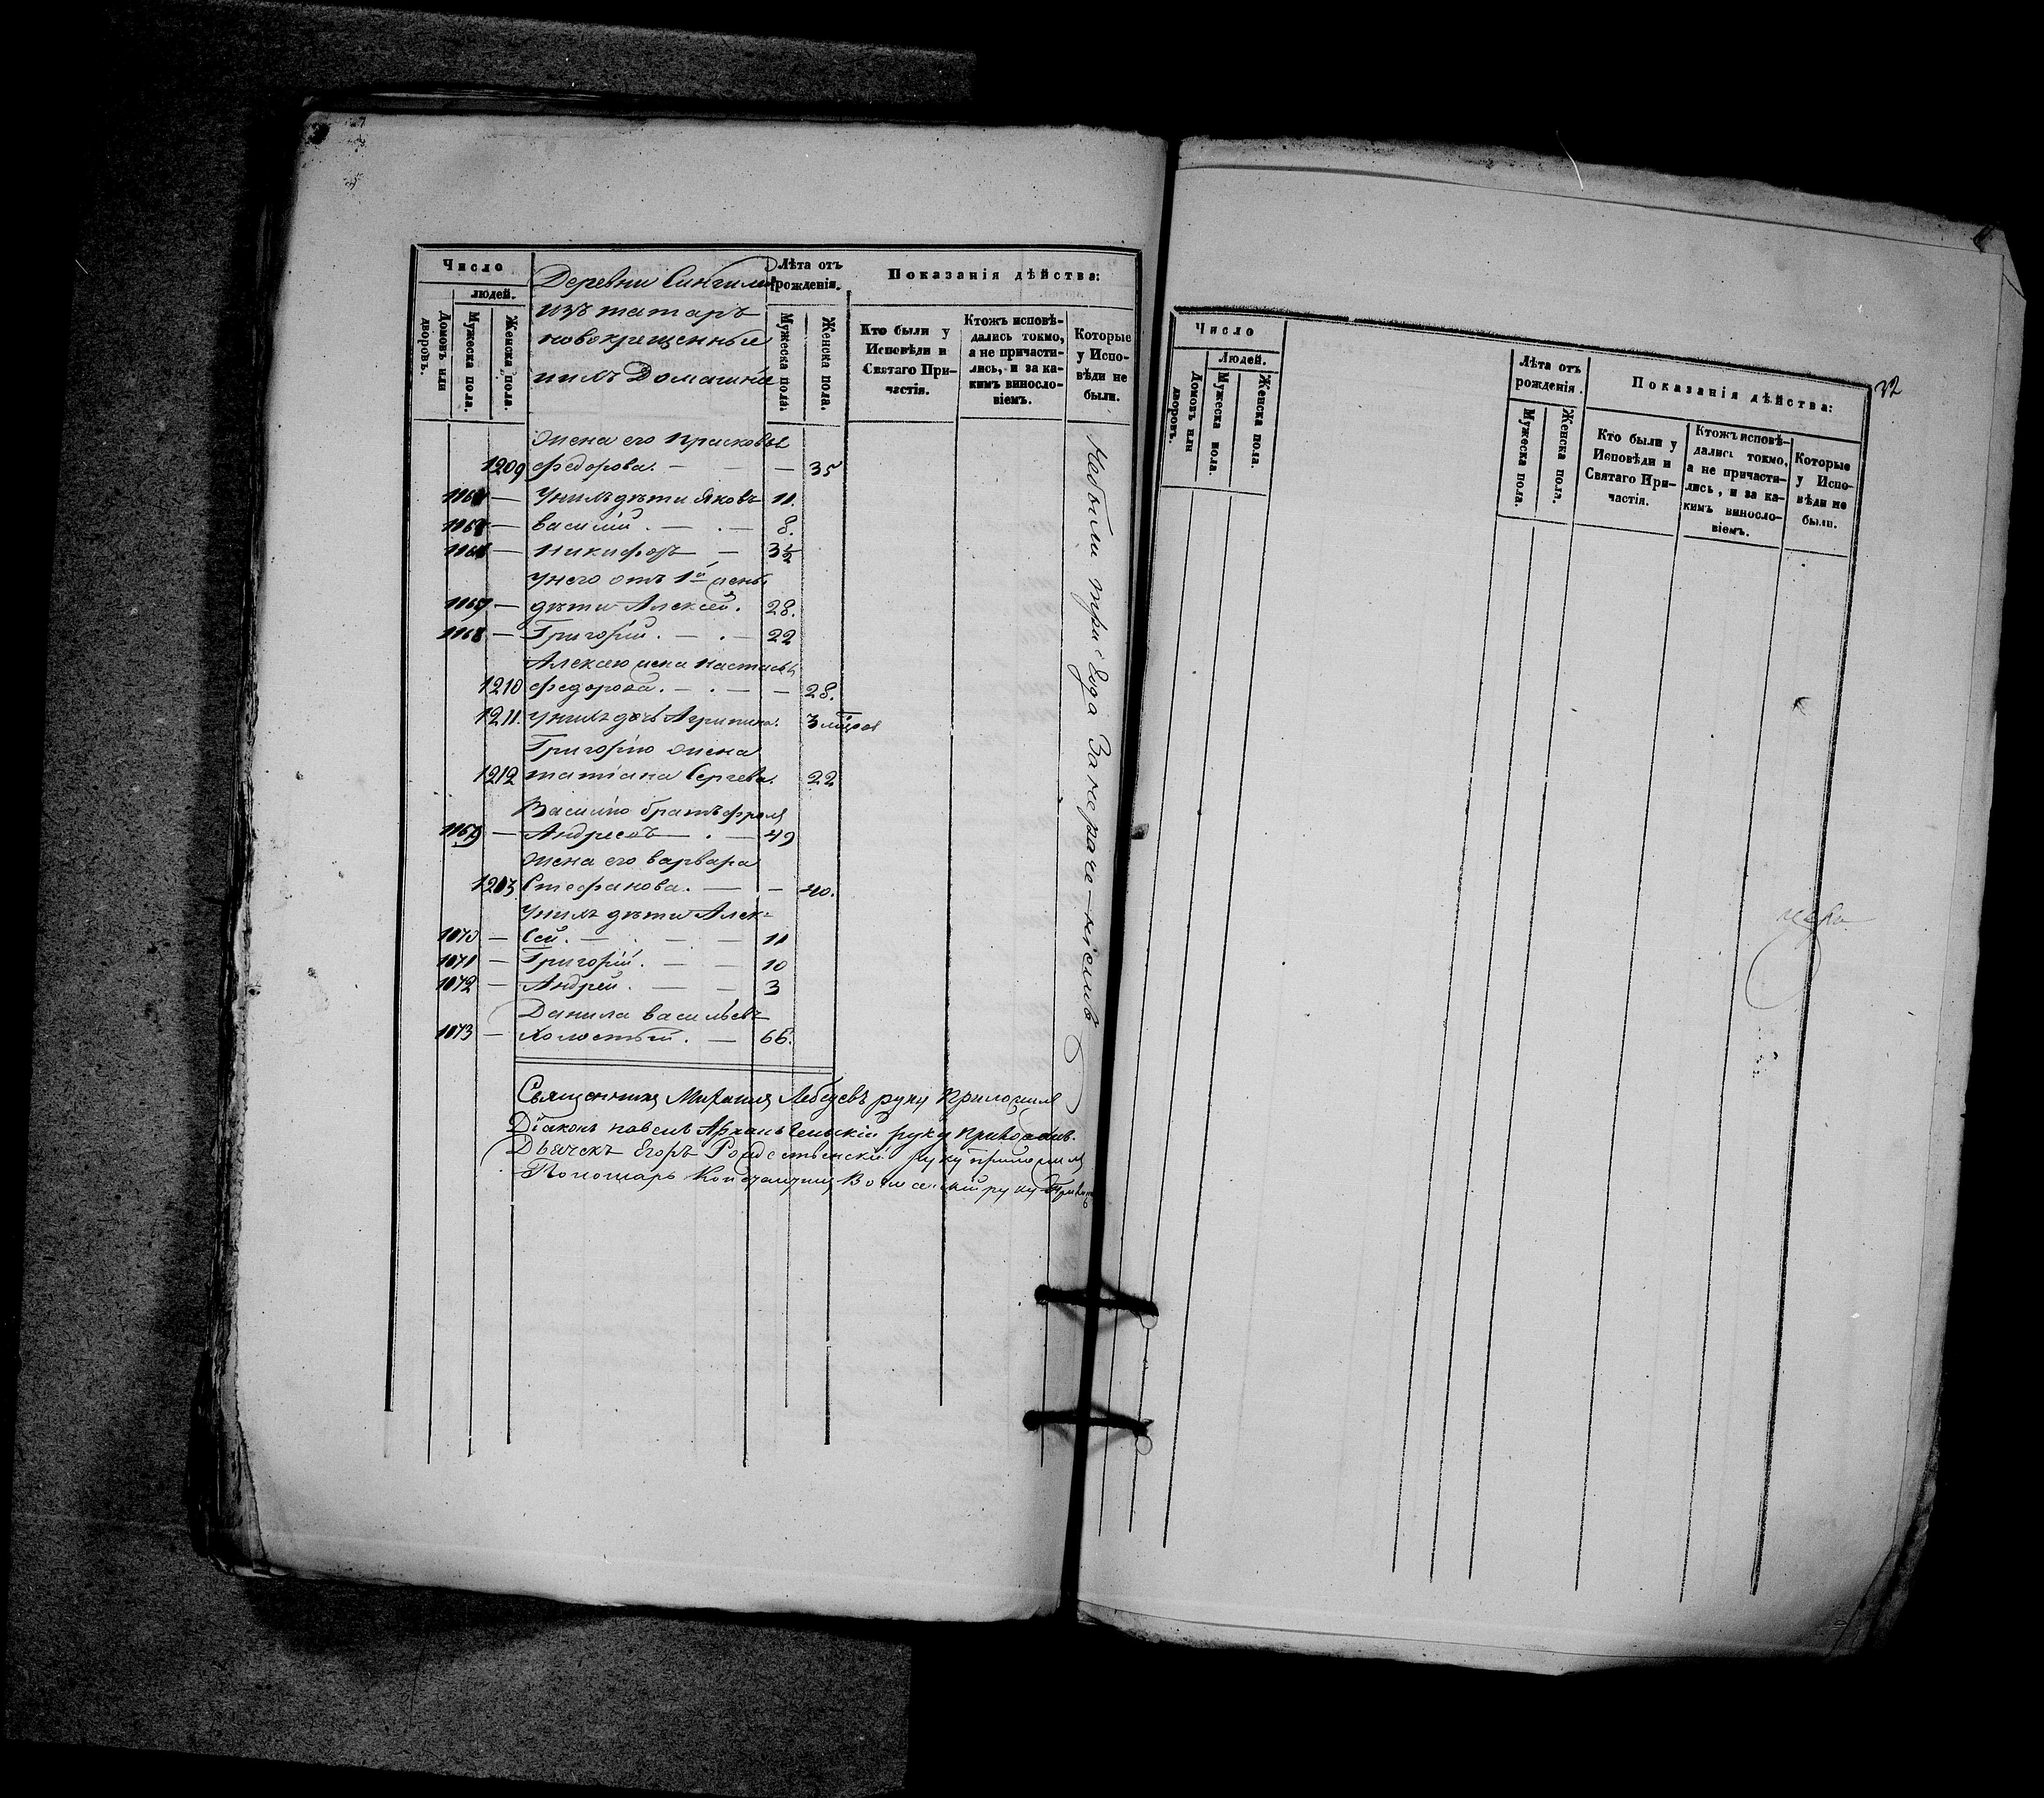 Число
людей.
Домовъ или дворовъ.
Мужеска пола.
Женска пола.
Деревни
изъ татаръ
новокрещенные
и ихъ Домашніе
Лѣта отъ рожденія.
Мужеска пола.
Женска пола.
Показанія дѣйства:
Кто были у Исповѣди и Святаго При-частія.
Ктожъ исповѣ-дались токмо, а не причасти-лись, и за ка-кимъ винносло-віемъ.
Которые у Испо-вѣди не были.
Жена его Прасковья
1209 Федорова. — — — 35
— У нихъ дѣти Яковъ 11.
— Василій. — . — 8.
— Никифоръ — 3½
У него отъ 1й жены
1067 — дѣти Алексѣй. 28.
1068 — Григорій. — . — 22
Алексѣю жена Настасья
1210 Федорова. — . — — 28.
1211. У нихъ дочь Агрипина. 3
Григорію жена
1212 Татіана Сергѣева. 22
Василію братъ Фролъ
1069 — Андреевъ — . — 49
Жена его Варвара
1213 Стефанова. — — 40.
У нихъ дѣти Алек-
1070 — сѣй. — . — — 11
1071 — Григорій. — — 10
1072 — Андрей. — — 3
Данила Васильевъ
1073 — Холостый. — 66.
Не были три года За нераченіемъ
Священникъ Лебедевъ руку приложилъ
Діаконъ Павелъ Архангельскій руку приложилъ.
Дьячекъ Егоръ Рождественскій руку приложилъ
Пономарь Константинъ руку
Число
Людей.
Домовъ или дворовъ.
Мужеска пола.
Женска пола.
Лѣта отъ рожденія.
Мужеска пола.
Женска пола.
Показанія дѣйства:
Кто были у Исповѣди и Святаго При-частія.
Ктожъ исповѣ-дались токмо, а не причасти-лись, и за ка-кимъ винносло-віемъ.
Которые у Испо-вѣди не были.
32